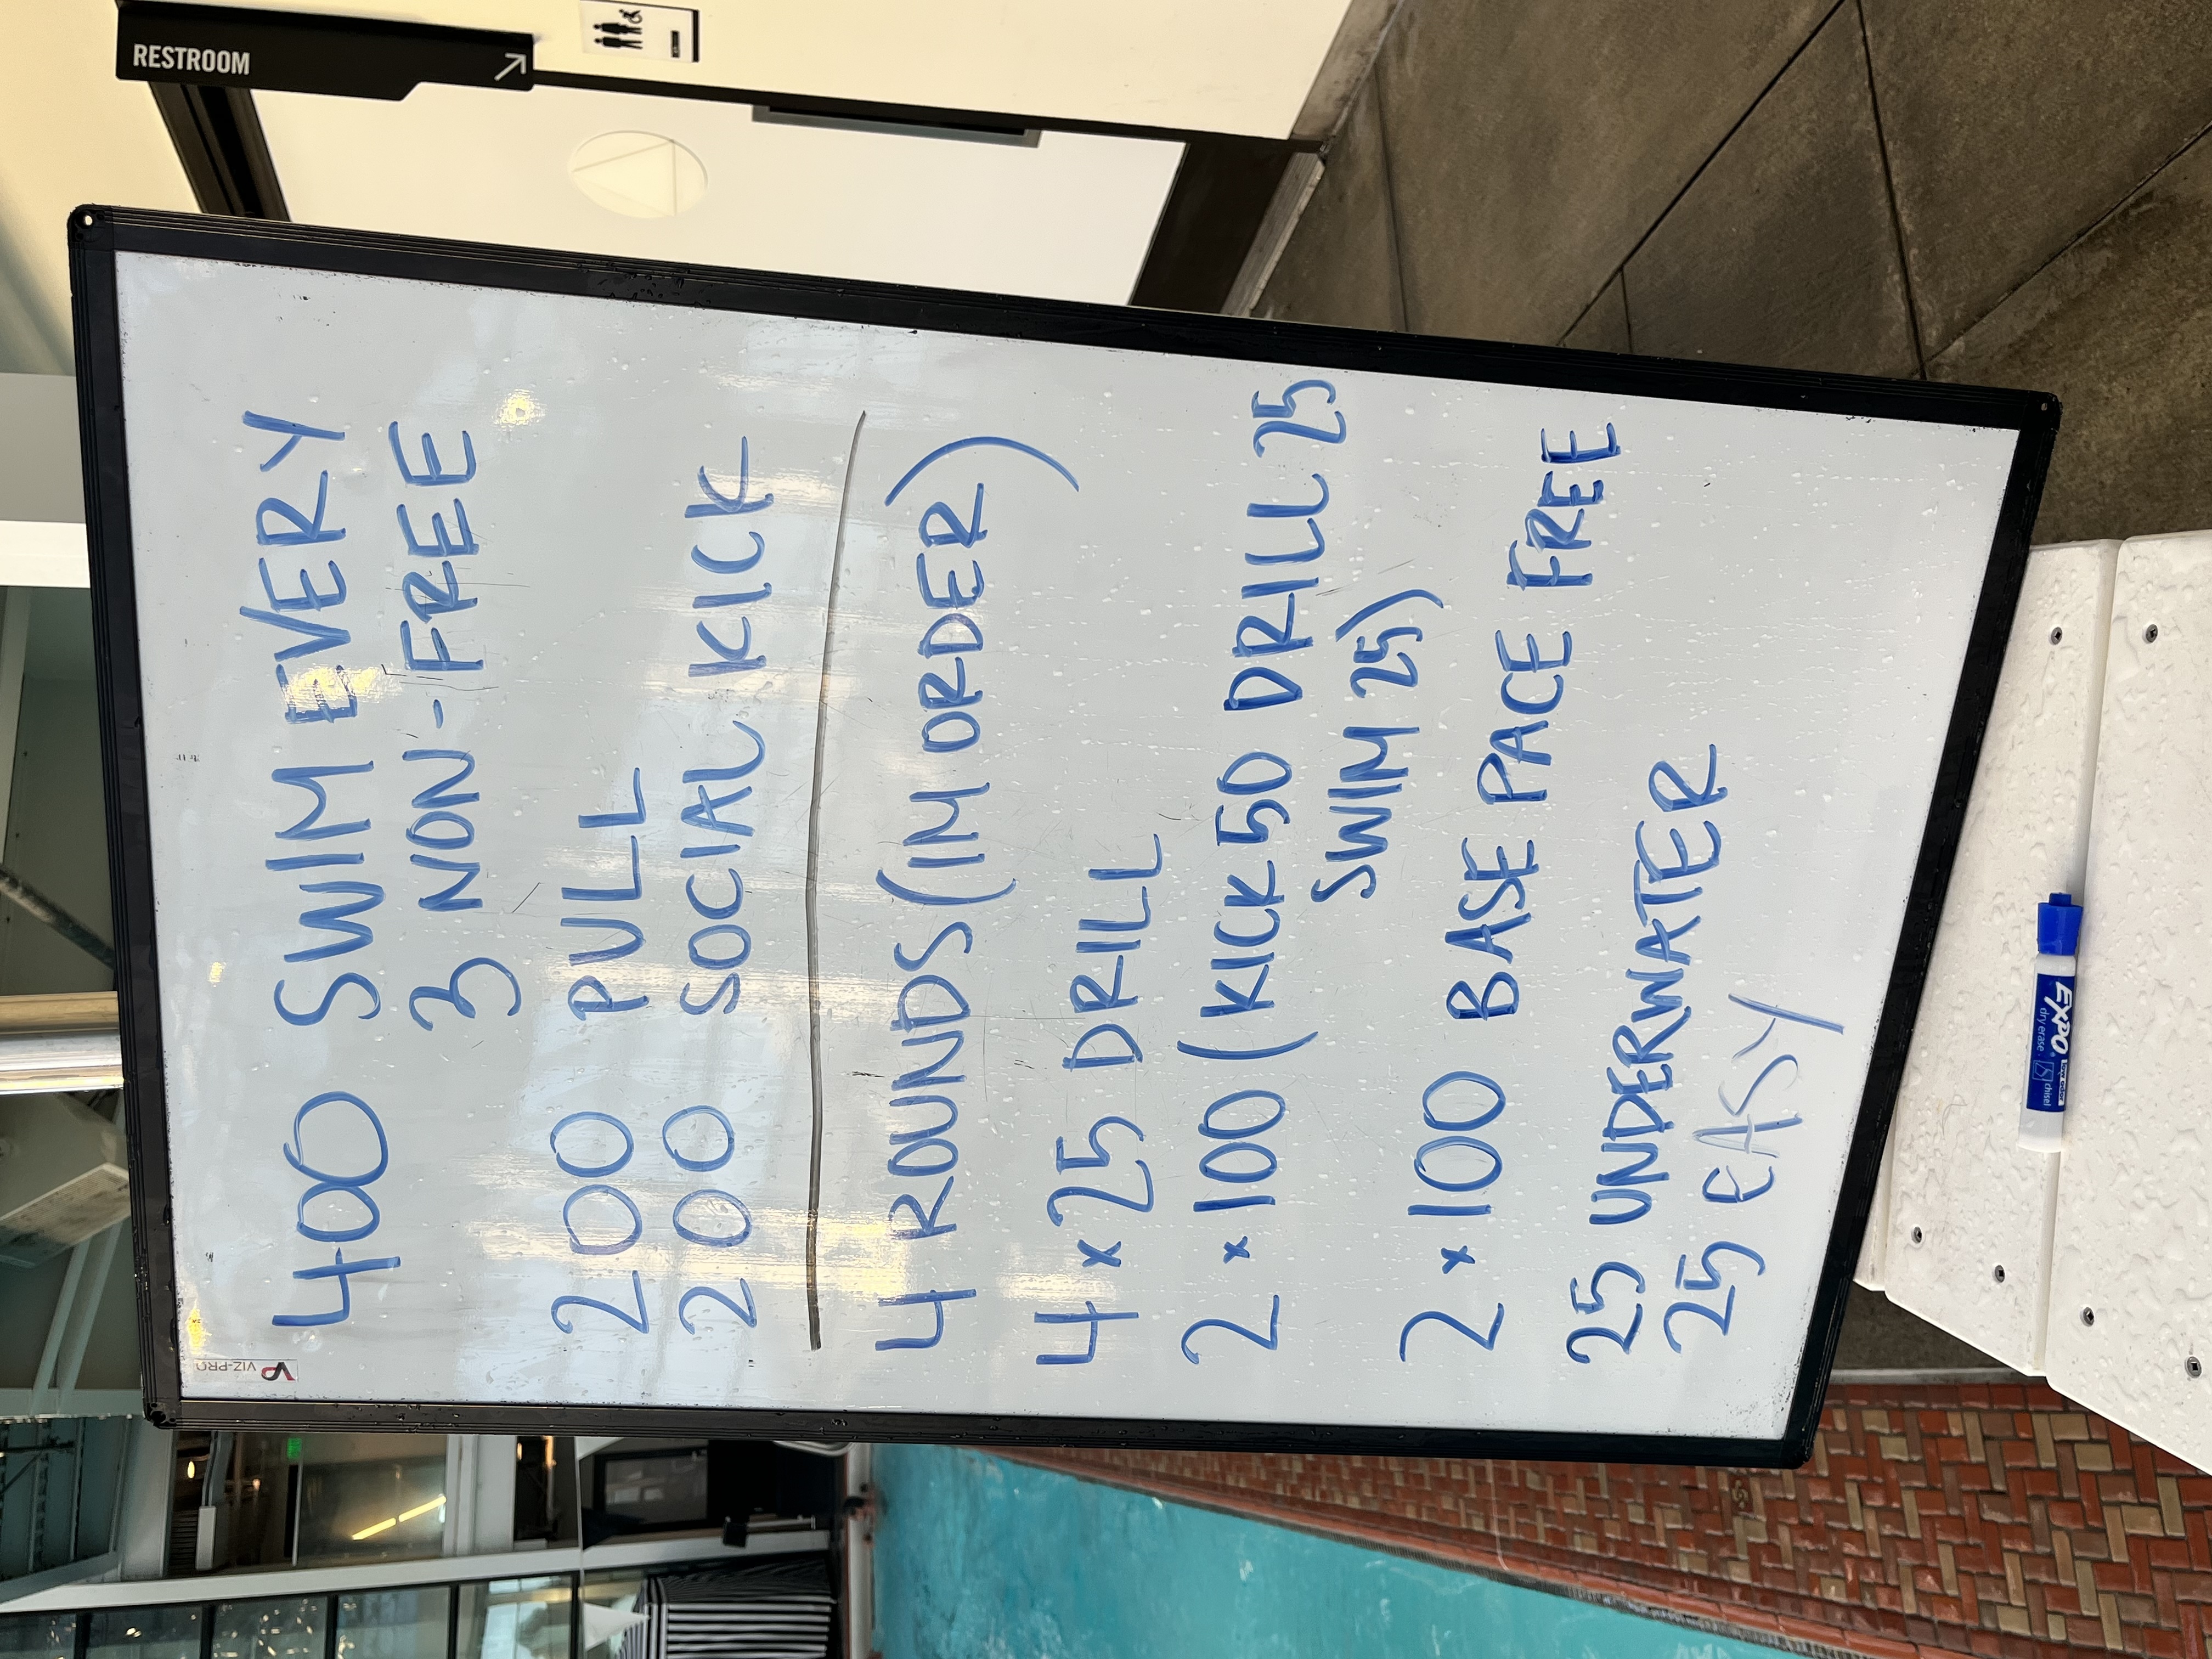 RESTROOM
VIZ-PRO
400 SWIM EVERY
3 NON-FREE
200 PULL
200 SOCIAL KICK
4 ROUNDS (IM ORDER)
4 x 25 DRILL
2 x 100 (KICK 50 DRILL 25
SWIM 25)
2 x 100 BASE PACE FREE
25 UNDERWATER
25 EASY
EXPO
dry erase
chisel